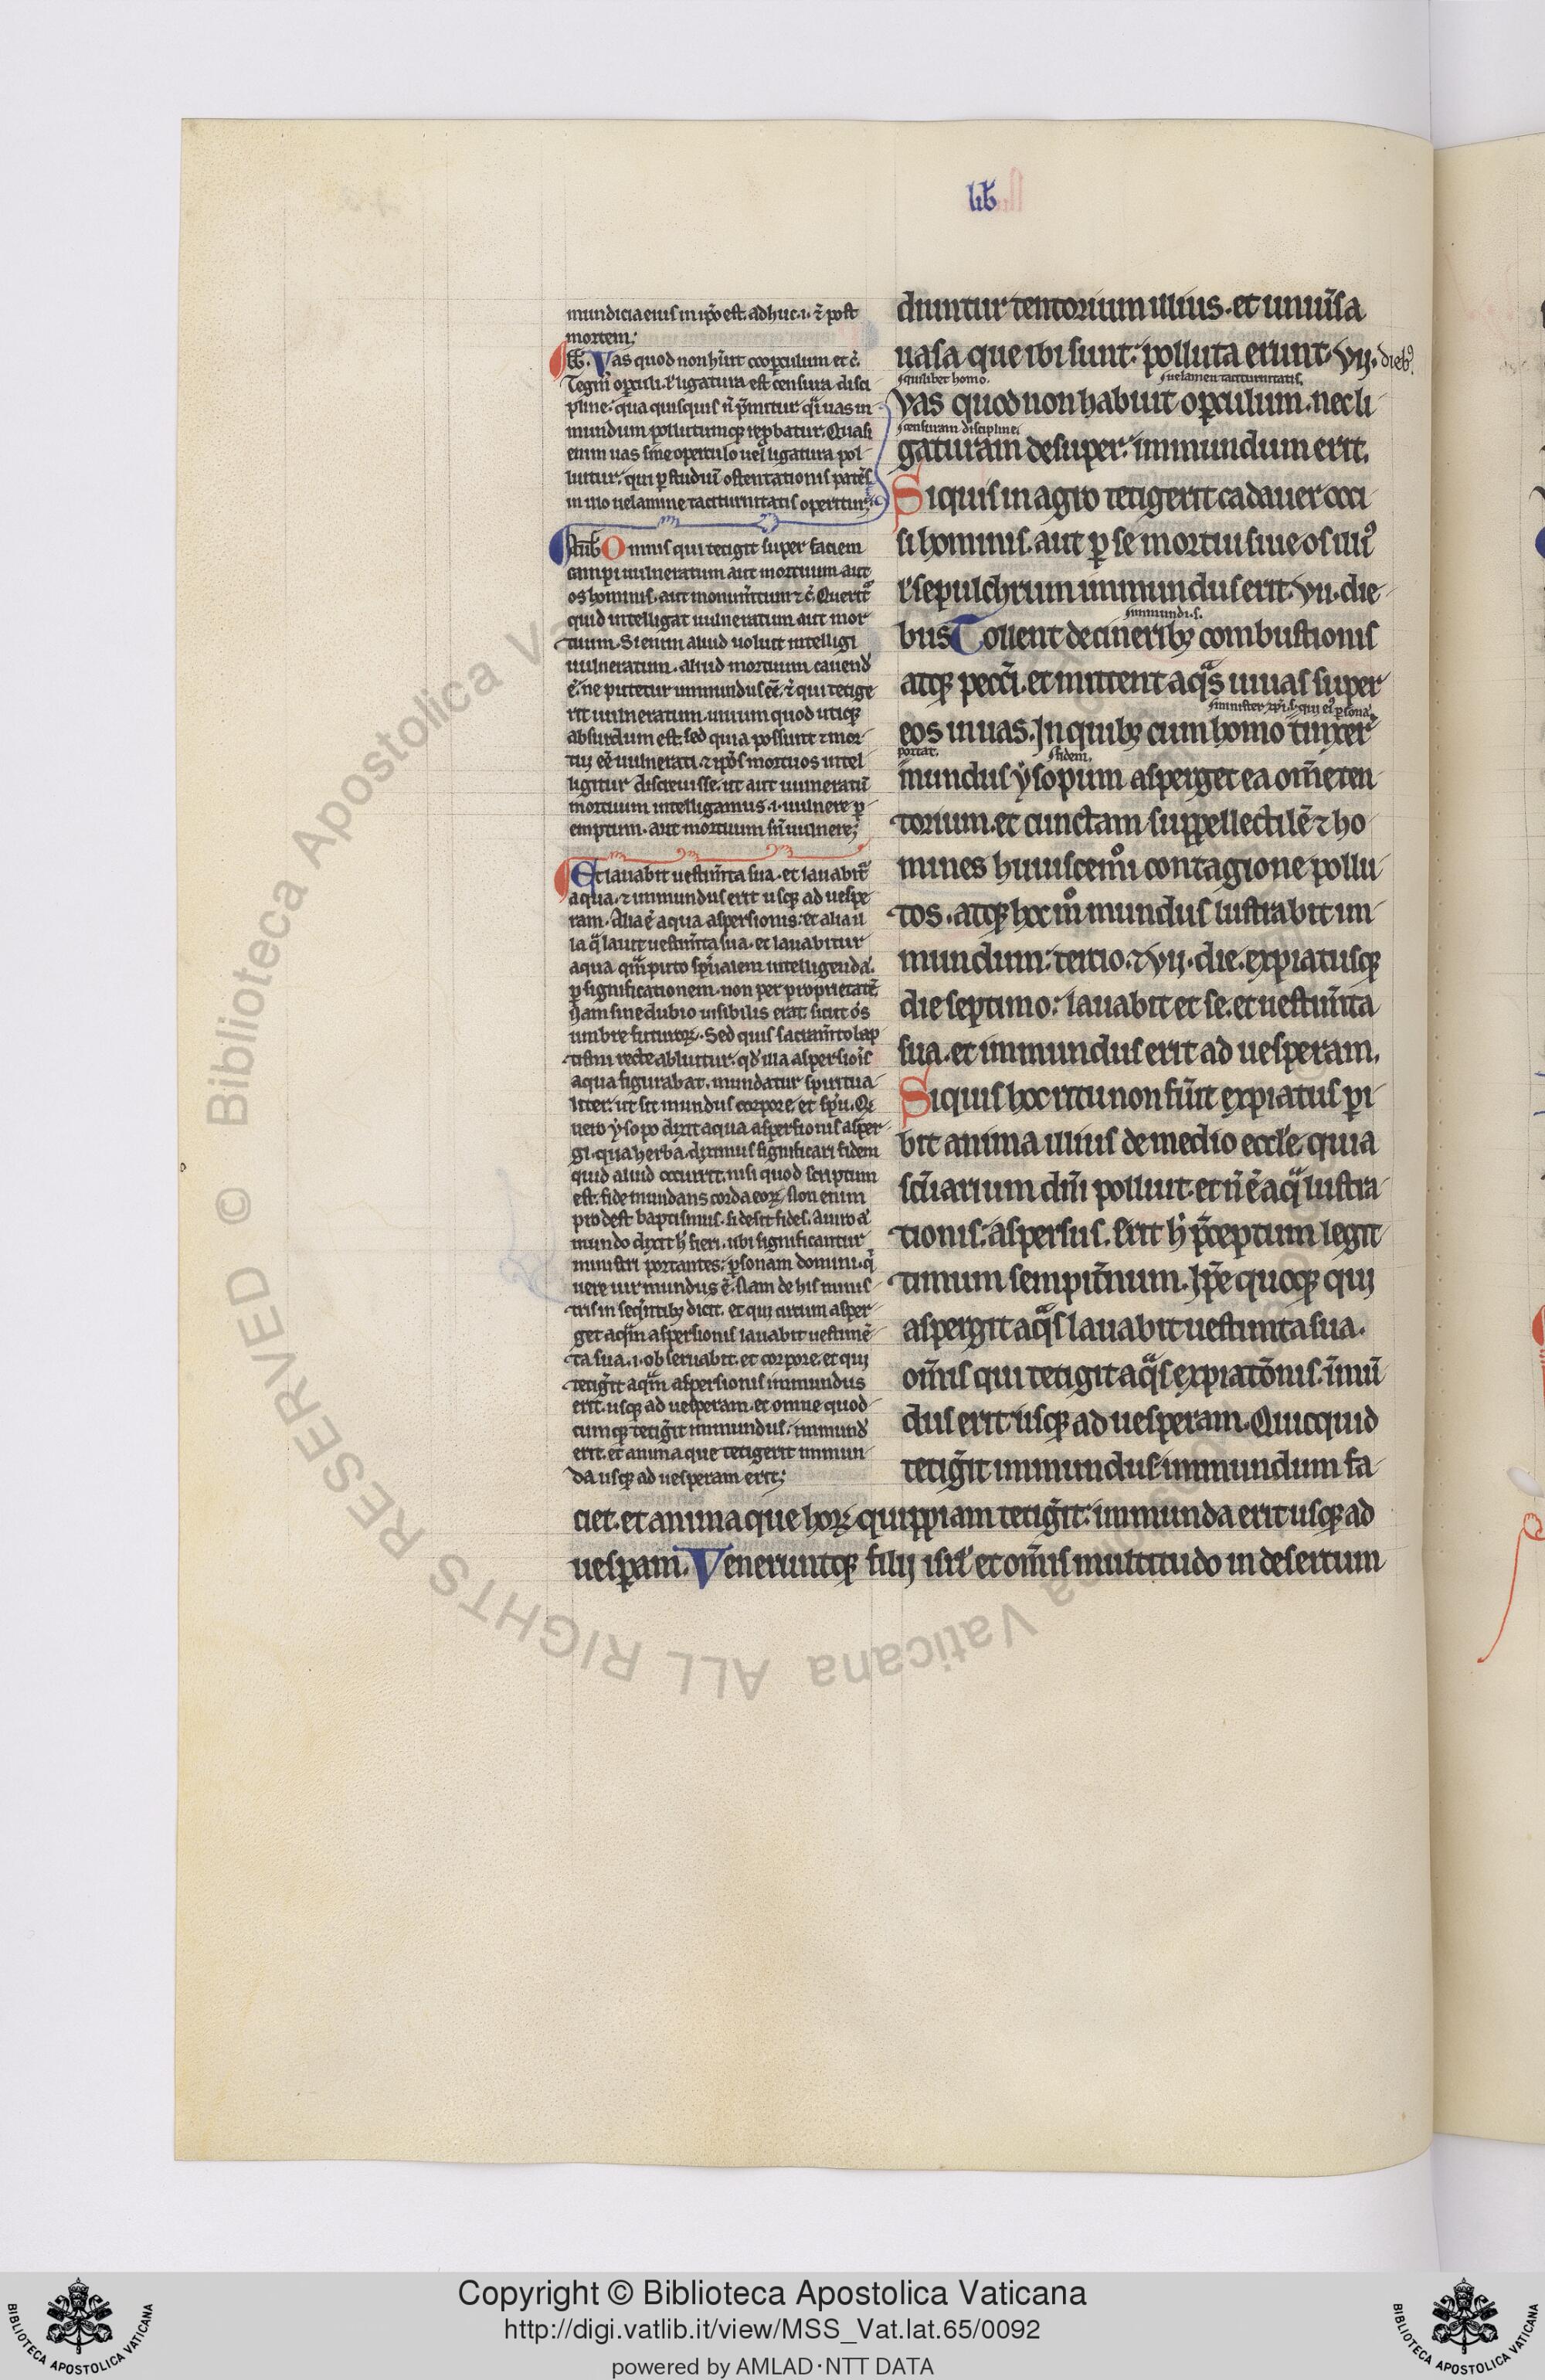 lib
mundicia eius in ip̄o est. adhuc .i. ⁊ post
mortem;
Vas quod non hūit cooꝑculum et c̄.
Tegm̄ oꝑculi. ł ligatura est censura disci-
pline. qua quisquis n̄ p̄mitur. q̄i uas in-
mundum pollutumqꝫ rep̄batur. Quasi
enim uas sine operculo uel ligatura pol-
luitur. qui ꝑ studiū ostentationis patēs
nullo uelamine taciturnitatis operitur;
Omnis qui tetigit super faciem
campi uulneratum aut mortuum aut
os hominis. aut monum̄tum ⁊ c̄. Querit᷑
quid intelligat uulneratum aut mor-
tuum. Si enim aliud uoluit intelligi
uulneratum. aliud mortuum. cauend̄
ē. ne putetur inmundus eē. ⁊ qui tetige-
rit uulneratum. uiuum quod utiqꝫ
absurdum est. sed quia possunt ⁊ mor-
tui eē uulnerati. ⁊ ip̄os mortuos intel-
ligitur discreuisse. ut aut uulneratū
mortuum intelligamus .i. uulnere ꝑ-
emptum. aut mortuum sn̄ uulnere;
Et lauabit uestim̄ta sua. et lauabit᷑
aqua. ⁊ inmundus erit usqꝫ ad uespe-
ram. Alia ē aqua aspersionis. et alia il-
la q̄ lauit uestim̄ta sua. et lauabitur
aqua. quā puto sp̄ualem intelligendā.
ꝑ significationem. non per proprietatē.
Nam sine dubio uisibilis erat. sicut om̄s
umbre futuroꝝ. Sed quis sacram̄to bap-
tismi recte abluitur. qd̄ illa aspersiōis
aqua figurabat. mundatur spiritua-
liter. ut sit mundus corpore. et sp̄u. Qd̄
uero ysopo dixit aqua aspersionis asper-
gi. qua herba diximus significari fidem
quid aliud occurrit. nisi quod scriptum
est. fide mundans corda eoꝝ. Non enim
prodest baptismus. si desit fides. A uiro ā
mundo dixit h̄ fieri. ubi significantur
ministri portantes. ꝑsonam domini. q̄
uere uir mundus ē. Nam de his minis-
tris in seq̄ntibꝫ dicit. et qui circum asper-
get aquā aspersionis lauabit uestimē-
ta sua .i. obseruabit. et corpore. et qui
tetiḡit aquā aspersionis inmundus
erit. usqꝫ ad uesperam. et omne quod-
cumqꝫ tetiḡit inmundus. inmund̄
erit. et anima que tetigerit inmun-
da usqꝫ ad uesperam erit;
diuntur tentorium illius. et uniuūsa
uasa que ibi sunt. polluta erunt. vij. dieb᷒.
quilibet homo. uelamen taciturnitatis.
Vas quod non habuit oꝑculum. nec li-
censuram discipline.
gaturam desuper. inmundum erit.
Si quis in agro tetigerit cadauer occi-
si hominis. aut ꝑ se mortui siue os illi᷒
ł sepulchrum inmundus erit. vii. die-
inmundi .s.
bus Tollent de cineribꝫ combustionis
atqꝫ pecc̄i. et mittent aq̄s uiuas super
eos in uas. In quibꝫ cum homo tinxer̄
portat. fidem.
mundus ysopum asperget ea om̄e ten-
torium. et cunctam suppellectilē ⁊ ho-
mines huiuscem̊i contagione pollu-
tos. atqꝫ hoc m̊ mundus lustrabit in-
mundum. tertio. ⁊ vij. die. expiatusqꝫ
die septimo. lauabit et se. et uestim̄ta
sua. et inmundus erit ad uesperam.
Si quis hoc ritu non fūit expiatus ꝑi-
bit anima illius de medio eccłe. quia
sc̄uarium dn̄i polluit. et n̄ ē aq̄ lustra-
tionis. aspersus. Erit h̄ p̄ceptum legit-
timum sempit̄num. Ip̄e quoqꝫ qui
aspergit aq̄s lauabit uestimta sua.
om̄is qui tetigit aq̄s expiatōnis. īmū-
dus erit usqꝫ ad uesperam. Quicquid
tetiḡit inmundus. inmundum fa-
ciet. et anima que hoꝝ quippiam tetiḡit. inmunda erit usqꝫ ad
uesꝑam. Veneruntqꝫ filij isrł et om̄is multitudo in desertum
Copyright © Biblioteca Apostolica Vaticana
http://digi.vatlib.it/view/MSS_Vat.lat.65/0092
powered by AMLAD·NTT DATA
BIBLIOTECA APOSTOLICA VATICANA
BIBLIOTECA APOSTOLICA VATICANA
© Biblioteca Apostolica Vaticana ALL RIGHTS RESERVED